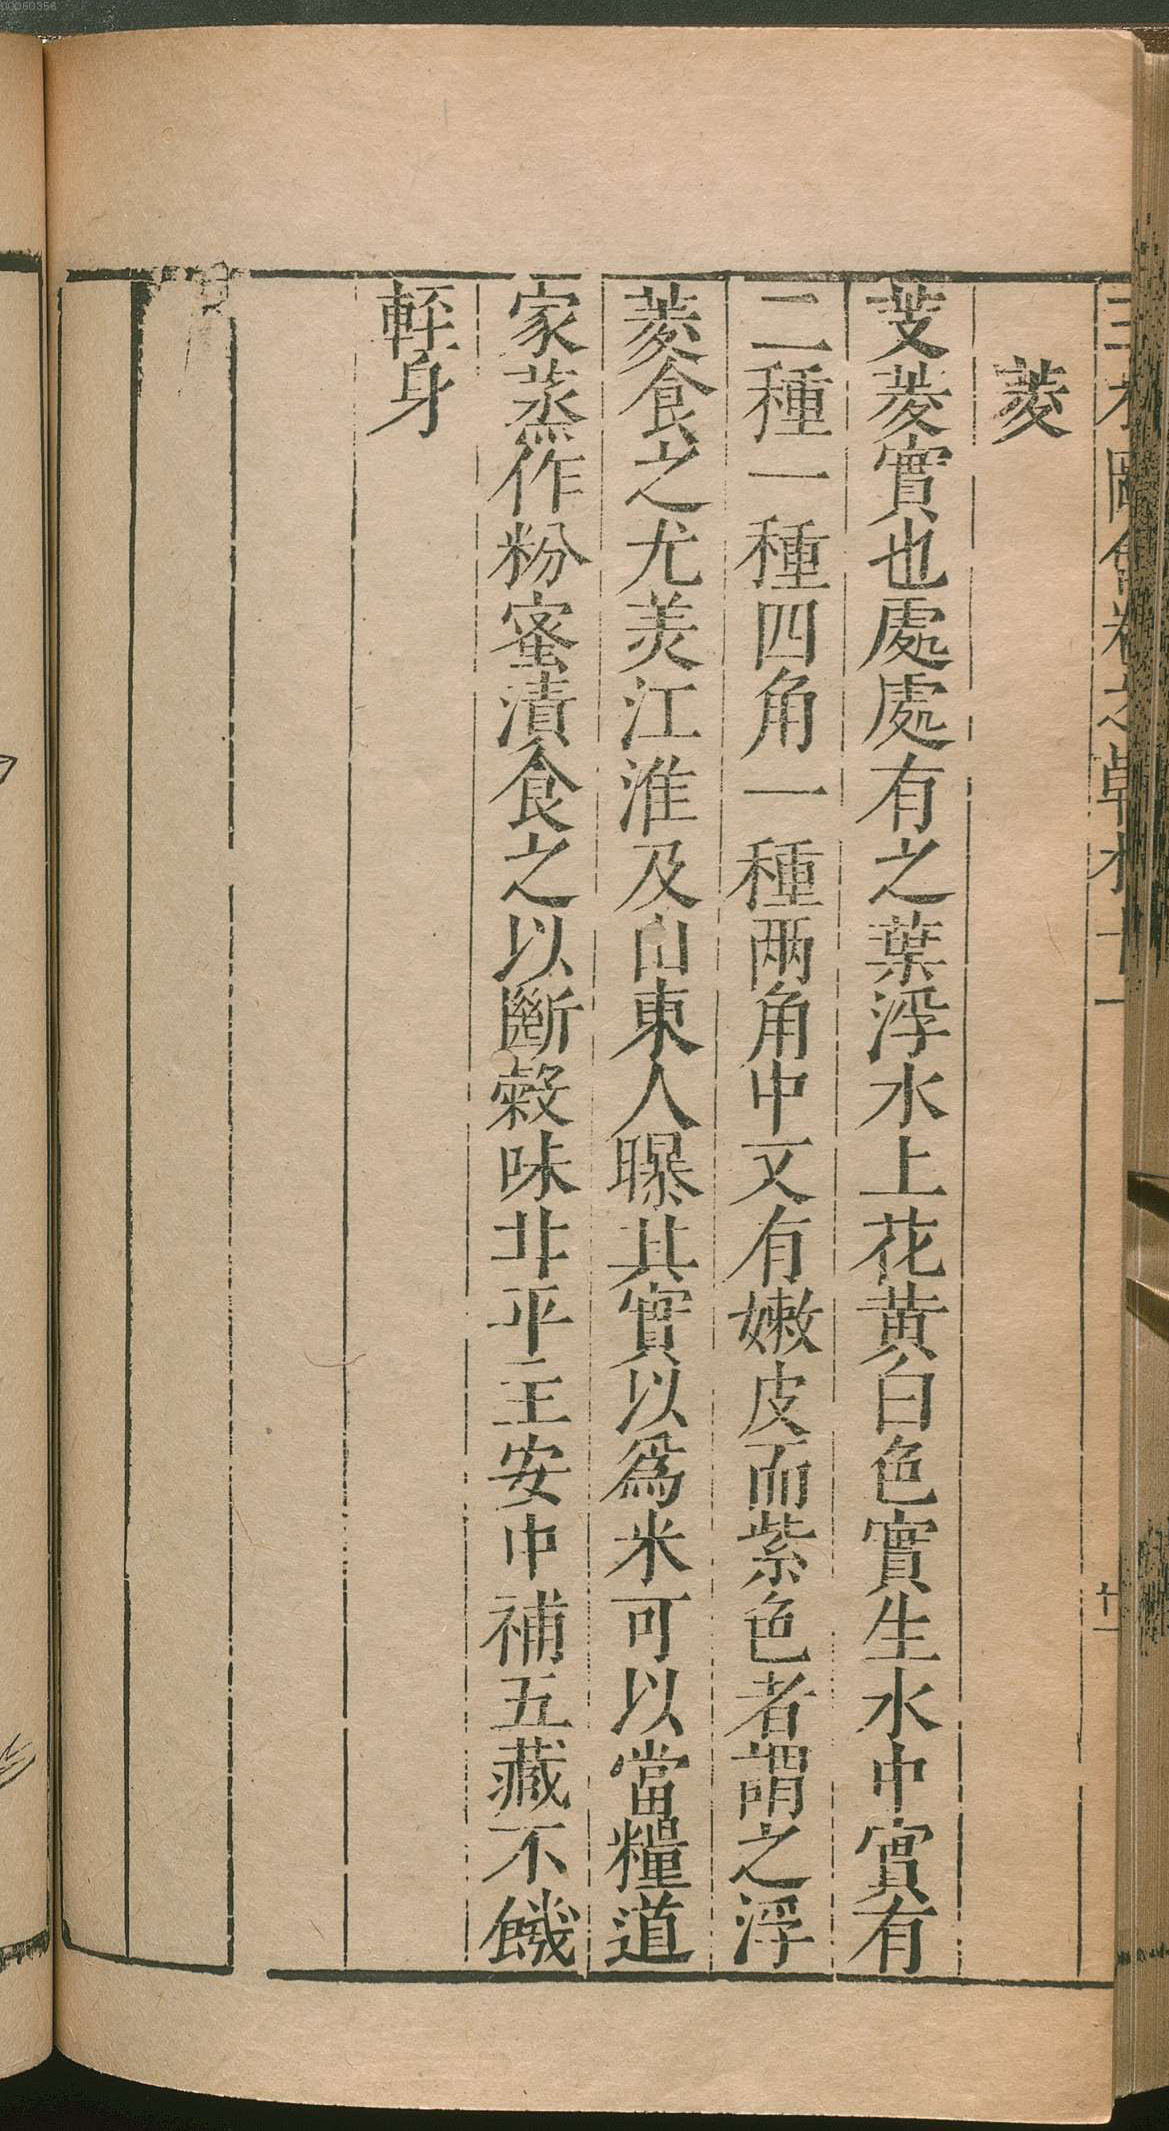 菱
芰菱實也處處有之葉浮水上花黄白色實生水中實有
二種一種四角一種兩角中又有嫩皮而紫色者謂之浮
菱食之尤美江淮及山東人曝其實以為米可以當糧道
家蒸作粉蜜漬食之以斷穀味甘平主安中補五藏不饑
輕身
十一
00060356